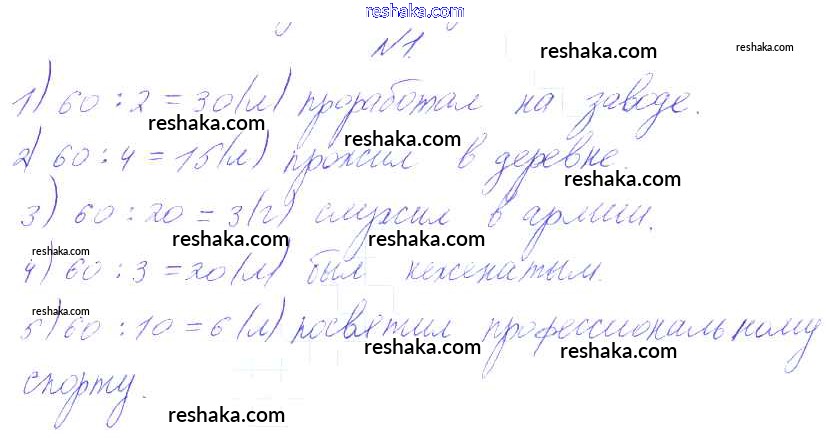 reshaka.com
N1.
reshaka.com
1) 60 : 2 = 30 (л) проработал на заводе.
reshaka.com
reshaka.com
2) 60 : 4 = 15 (л) прожил в деревне.
reshaka.com
3) 60 : 20 = 3 (г) служил в армии.
reshaka.com reshaka.com
reshaka.com
4) 60 : 3 = 20 (л) был неженатым.
reshaka.com
5) 60 : 10 = 6 (л) посвятил профессиональному
reshaka.com reshaka.com
спорту.
reshaka.com